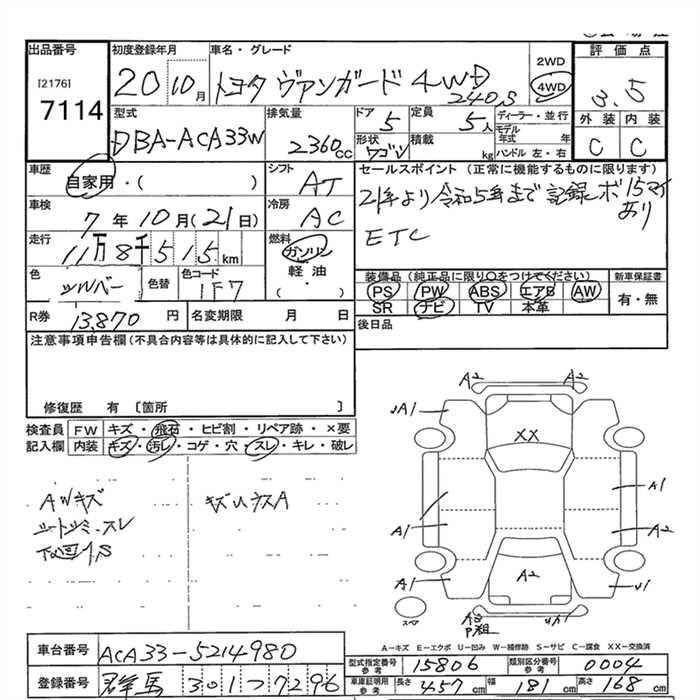 出品番号
[2176]
7114
初度登録年月
20 10月
車名・グレード
トヨタ ヴァンガード 4WD
240S
2WD
4WD
評価点
3.5
外装 内装
C C
型式
DBA-ACA33W
排気量
2360cc
ドア 5
定員 5人
形状 ワゴン
積載 kg
ディーラー・並行
モデル年式 年
ハンドル 左・右
車歴
自家用・( )
シフト
AT
車検
7年10月(21日)
冷房
AC
走行
11万8千515km
燃料
ガソリン
軽油
( )
色
シルバー
色替
色コード
1F7
R券 13,870 円
名変期限 月 日
セールスポイント (正常に機能するものに限ります)
21年より令和5年まで記録ボ15マイ
あり
ETC
装備品 (純正品に限り○をつけてください)
PS PW ABS エアB AW
SR ナビ TV 本革
新車保証書
有・無
後日品
注意事項申告欄(不具合内容等は具体的に記入して下さい)
修復歴 有 〔箇所 〕
検査員
記入欄
FW キズ・飛石・ヒビ割・リペア跡・×要
内装 キズ・汚レ・コゲ・穴・スレ・キレ・破レ
AWキズ
シートシミ・スレ
下回りS
キズハウスA
A2 A2
UA1
XX
A1
A1
A2
A1
A2
U1
スペア
AS
P租
UA1
A-キズ E-エクボ U-凹み W-補修跡 S-サビ C-腐食 XX-交換済
車台番号
ACA33-5214980
登録番号
群馬 301 7296
型式指定番号
参考
15806
類別区分番号
参考
0004
車庫証明用
参考
長さ 457cm
幅 181cm
高さ 168cm